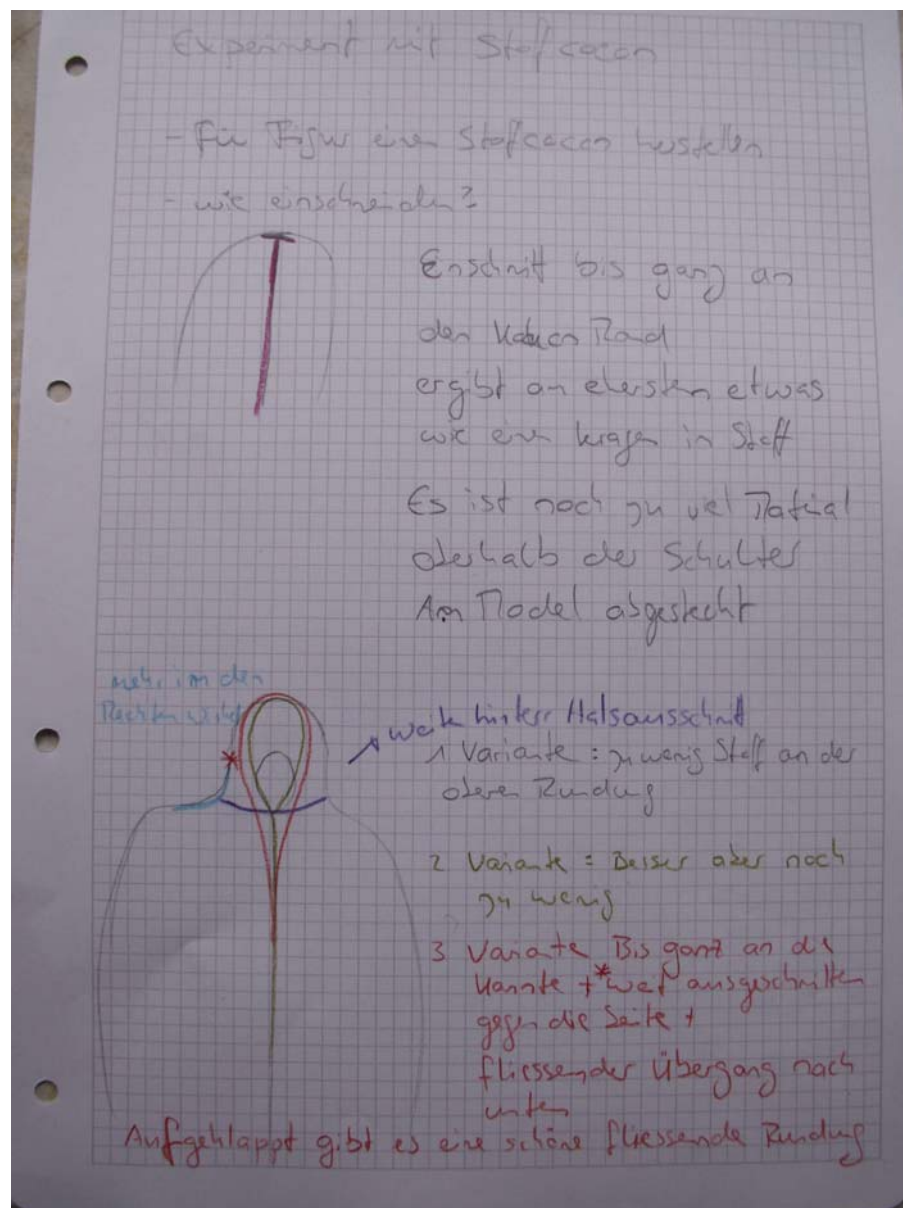 Experiment mit Stoffcocon
- Für Figur einen Stoffcocon herstellen
- wie einschneiden?
Einschnitt bis ganz an
den Rand
ergibt am ehersten etwas
wie einen kragen in Stoff
Es ist noch zu viel Matrial
oberhalb der Schulter
Am Model abgesteckt
mehr in den
weite hintere Halsausschnitt
1 Variante : zu wenig Stoff an der
oberen Rundung
2 Variante : Besser aber noch
zu wenig
3 Variante Bis ganz an die
Kannte + * weit ausgeschnitten
gegen die Seite +
fliessender Übergang nach
unten
Aufgeklappt gibt es eine schöne fliessende Rundung